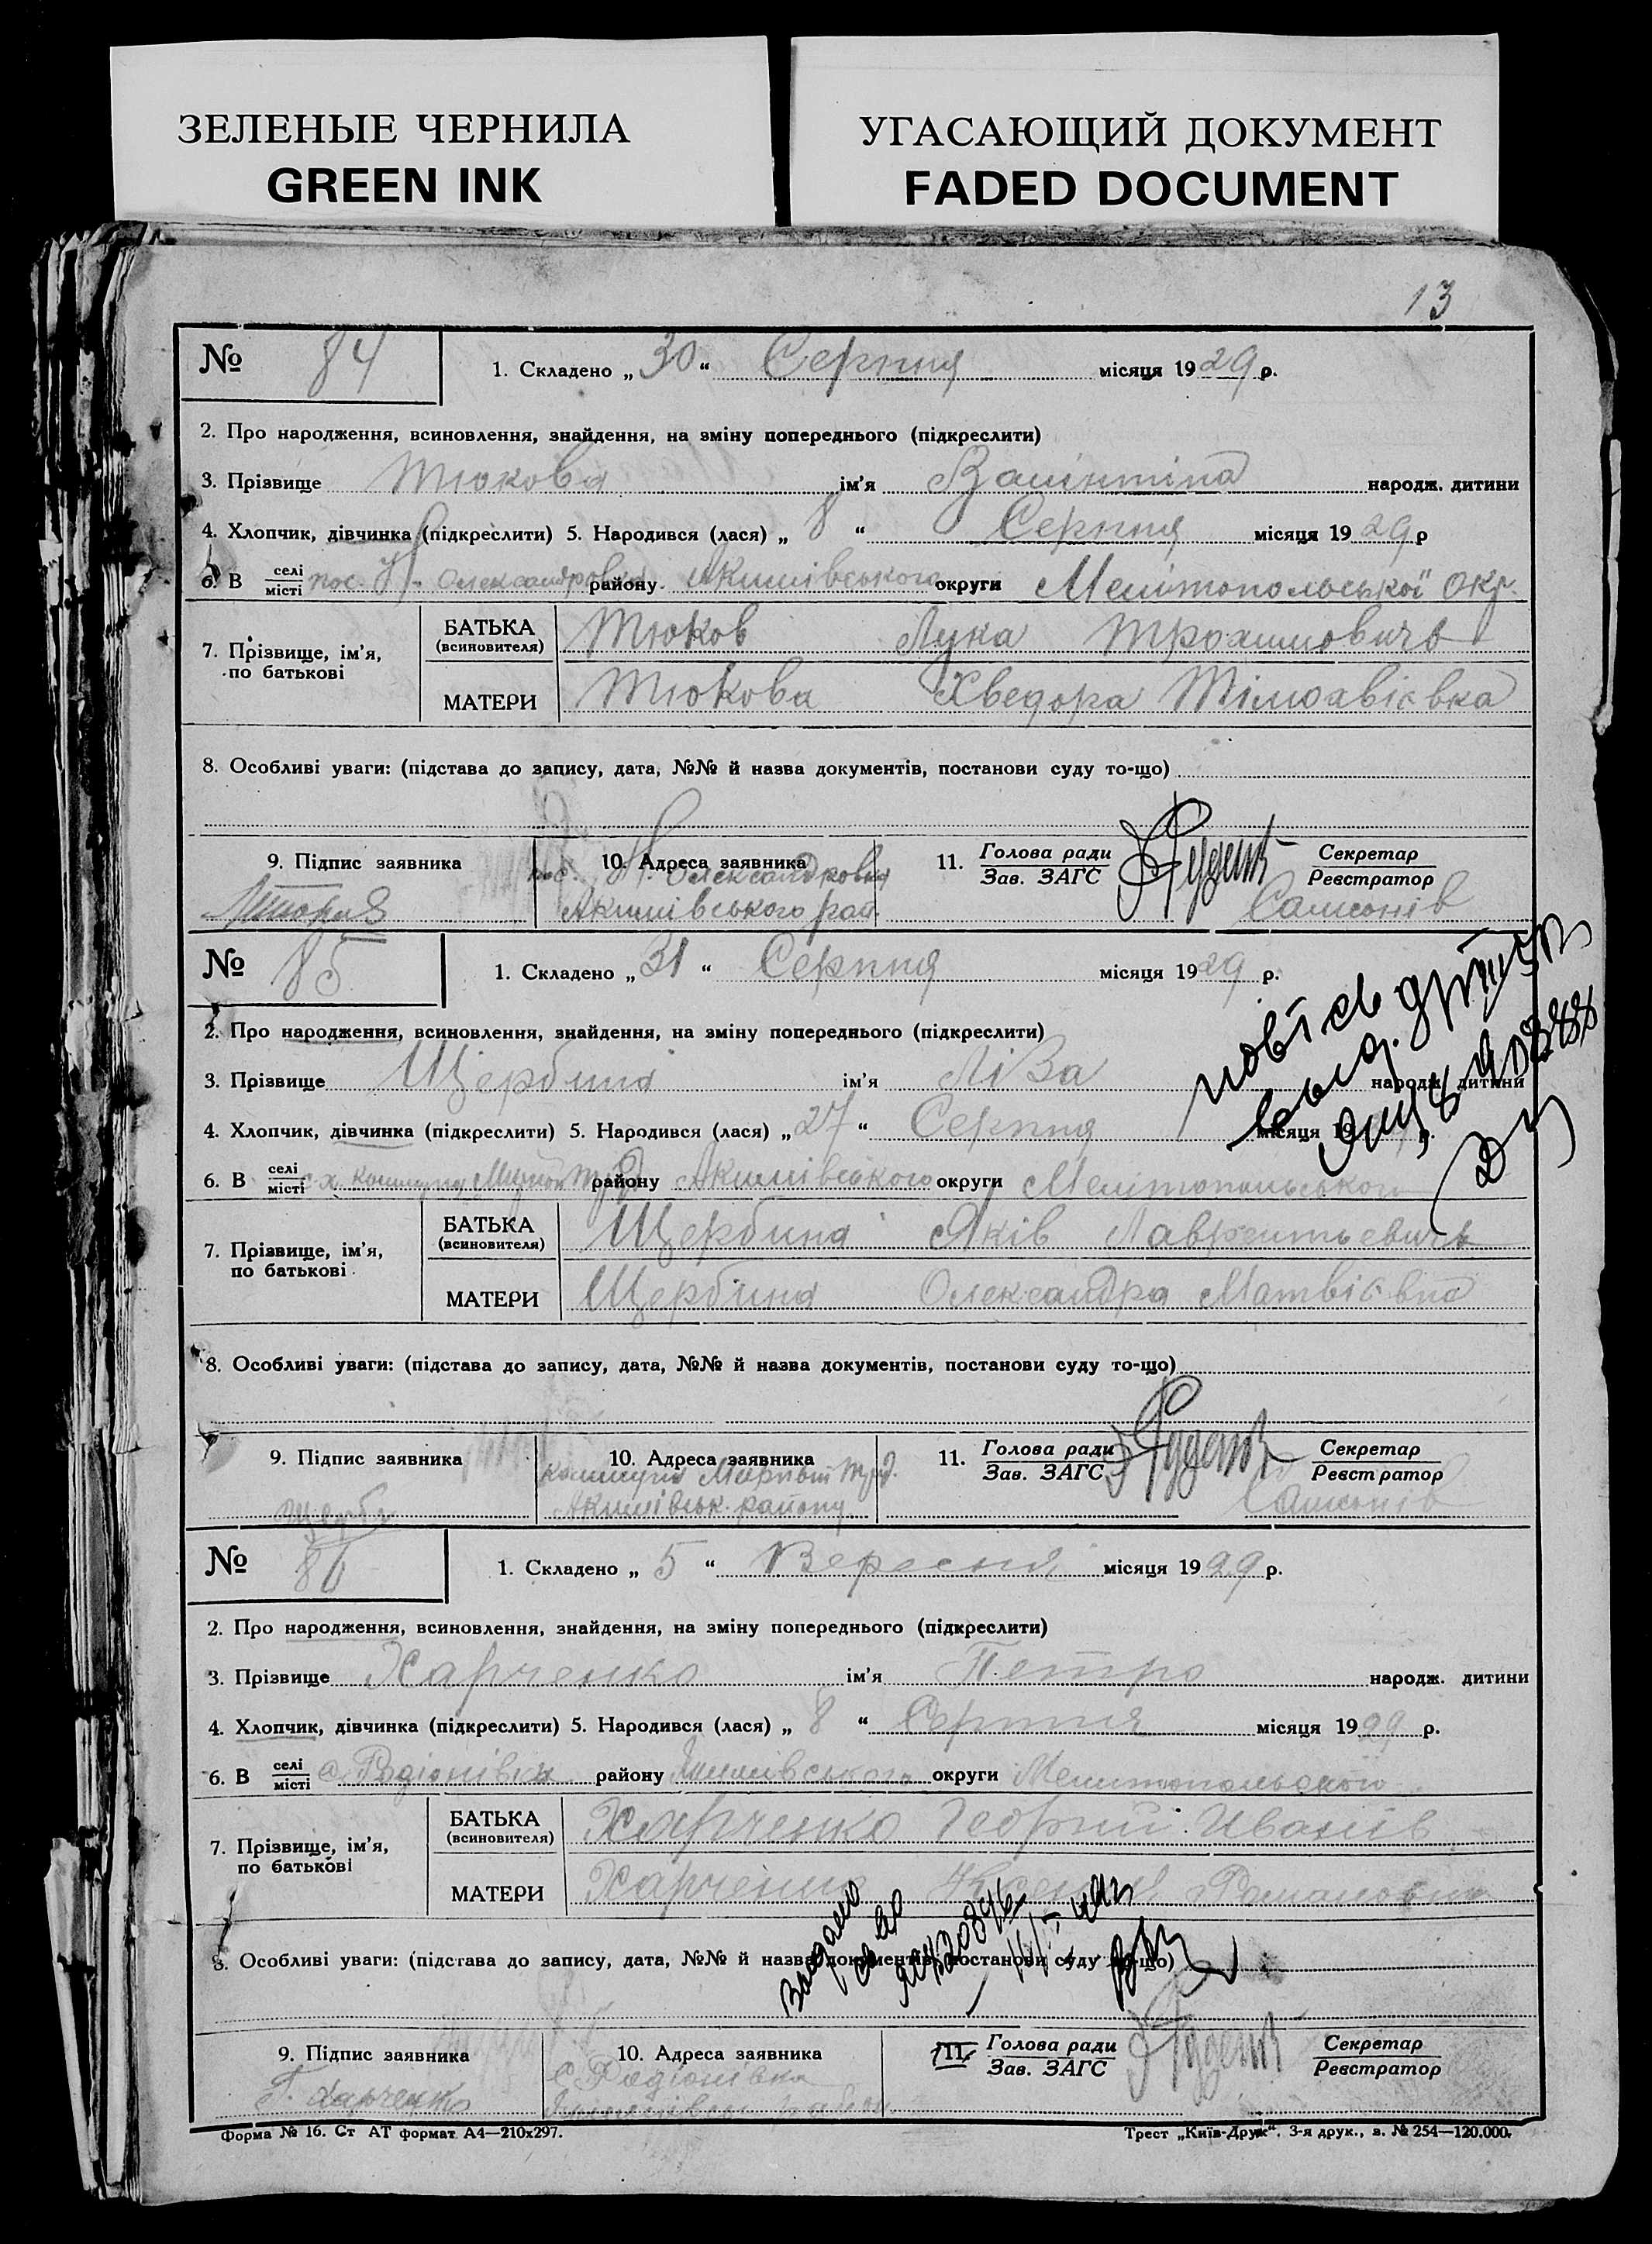 ЗЕЛЕНЫЕ ЧЕРНИЛА
GREEN INK
УГАСАЮЩИЙ ДОКУМЕНТ
FADED DOCUMENT
13
№ 84 1. Складено „30“ Серпня місяця 1929 р.
2. Про народження, всиновлення, знайдення, на зміну попереднього (підкреслити)
3. Прізвище Тюкова ім'я Валінтіна народж. дитини
4. Хлопчик, дівчинка (підкреслити) 5. Народився (лася) „8“ Серпня місяця 1929 р
6. В селі місті пос. Н-Олександровка району Акимівського округи Мелітопольської окр.
7. Прізвище, ім'я, по батькові БАТЬКА (всиновителя) Тюков Лука Трохимовичь
МАТЕРИ Тюкова Хведора Тімохвієвка
8. Особливі уваги: (підстава до запису, дата, №№ й назва документів, постанови суду то-що)
9. Підпис заявника 10. Адреса заявника 11. Голова ради Зав. ЗАГС Секретар Реєстратор
пос. Н. Олександровка
Акимівського рай. Самсонів
№ 85 1. Складено „31“ Серпня місяця 1929 р.
2. Про народження, всиновлення, знайдення, на зміну попереднього (підкреслити)
3. Прізвище Щербина ім'я Ліза народж. дитини
4. Хлопчик, дівчинка (підкреслити) 5. Народився (лася) „27“ Серпня місяця 19 р.
6. В селі місті с-х комуна району Акимівського округи Мелітопольського
7. Прізвище, ім'я, по батькові БАТЬКА (всиновителя) Щербина Яків Лаврентьевичь
МАТЕРИ Щербина Олександра Матвієвна
8. Особливі уваги: (підстава до запису, дата, №№ й назва документів, постанови суду то-що)
9. Підпис заявника 10. Адреса заявника 11. Голова ради Зав. ЗАГС Секретар Реєстратор
Акимівськ. району Самсонів
№ 86 1. Складено „5“ Вересня місяця 1929 р.
2. Про народження, всиновлення, знайдення, на зміну попереднього (підкреслити)
3. Прізвище Харченко ім'я Петро народж. дитини
4. Хлопчик, дівчинка (підкреслити) 5. Народився (лася) „8“ Серпня місяця 1929 р.
6. В селі місті с. Радіонівка району Акимівського округи Мелитопольського
7. Прізвище, ім'я, по батькові БАТЬКА (всиновителя) Харченко Георгий Иванів
МАТЕРИ Харченко Ксения Романовна
8. Особливі уваги: (підстава до запису, дата, №№ й назва документів, постанови суду то-що)
9. Підпис заявника 10. Адреса заявника 11. Голова ради Зав. ЗАГС Секретар Реєстратор
Г. Харченко с Радіонівка
Форма № 16. Ст АТ формат А4—210х297. Трест „Київ-Друк“. 3-я друк., з. № 254—120.000.